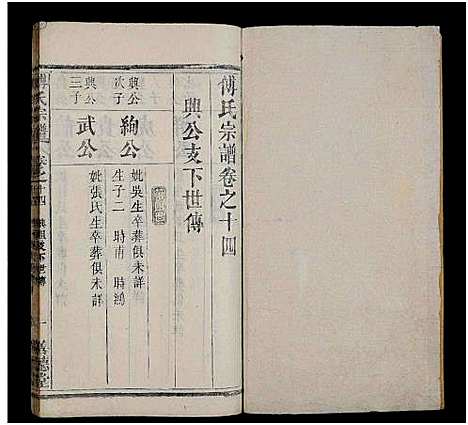 傅氏宗譜卷之十四
興公支下世傳
興公次子
絢公
妣吳氏生卒葬俱未詳
生子二 時甫 時鴻
興公三子
武公
妣張氏生卒葬俱未詳
傅氏宗譜
卷之十四
興祖支下世傳
一